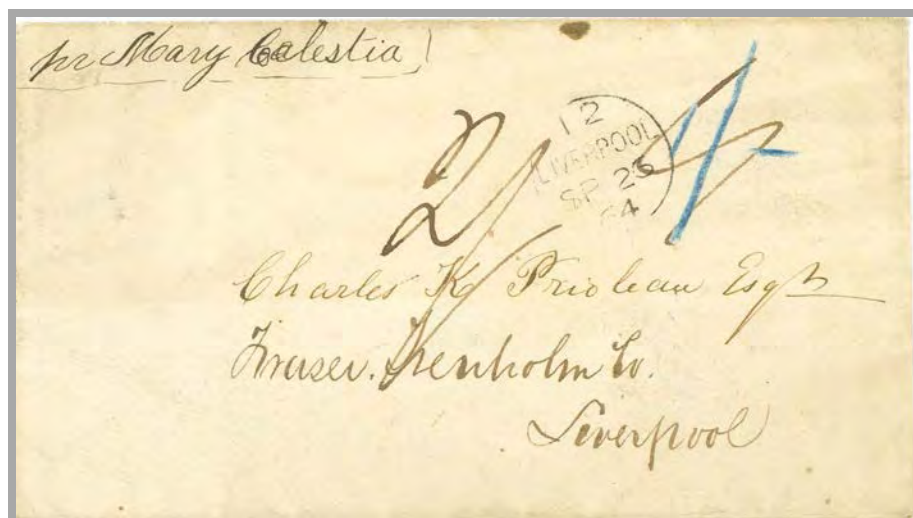 pr Mary Celestia
2/4
1/-
12
LIVERPOOL
SP 23
64
Charles K Prioleau Esqr
Fraser. Trenholm Co.
Liverpool